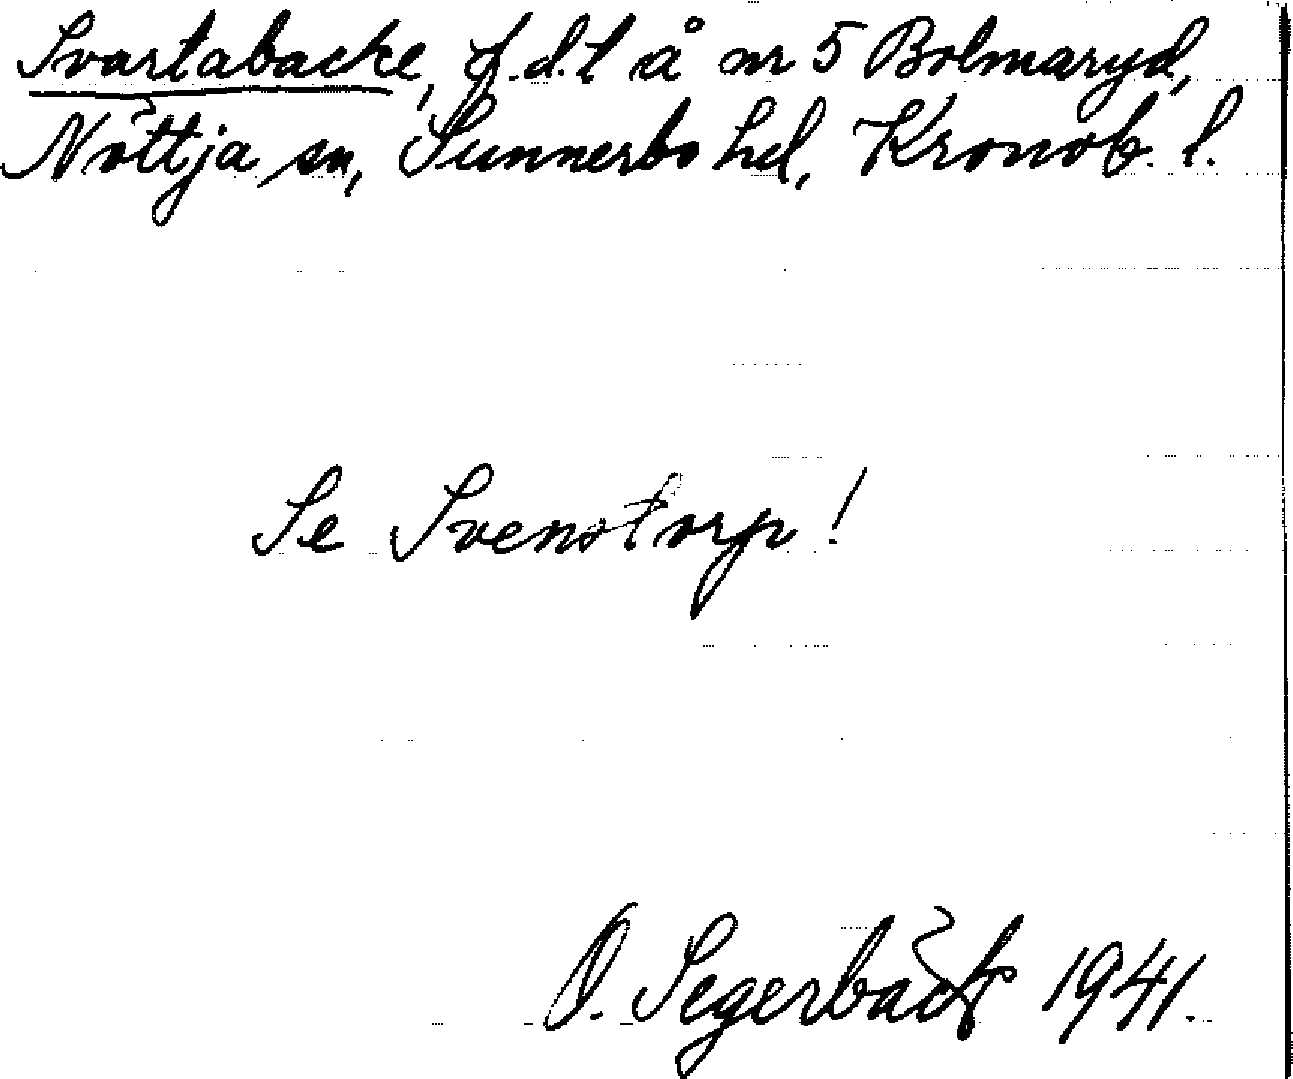 Svartabacke, f.d.t å nr 5 Bolmaryd,
Nöttja sn, Sunnerbo hd, Kronob. l.
Se Svenstorp!
O. Segerbäck 1941.